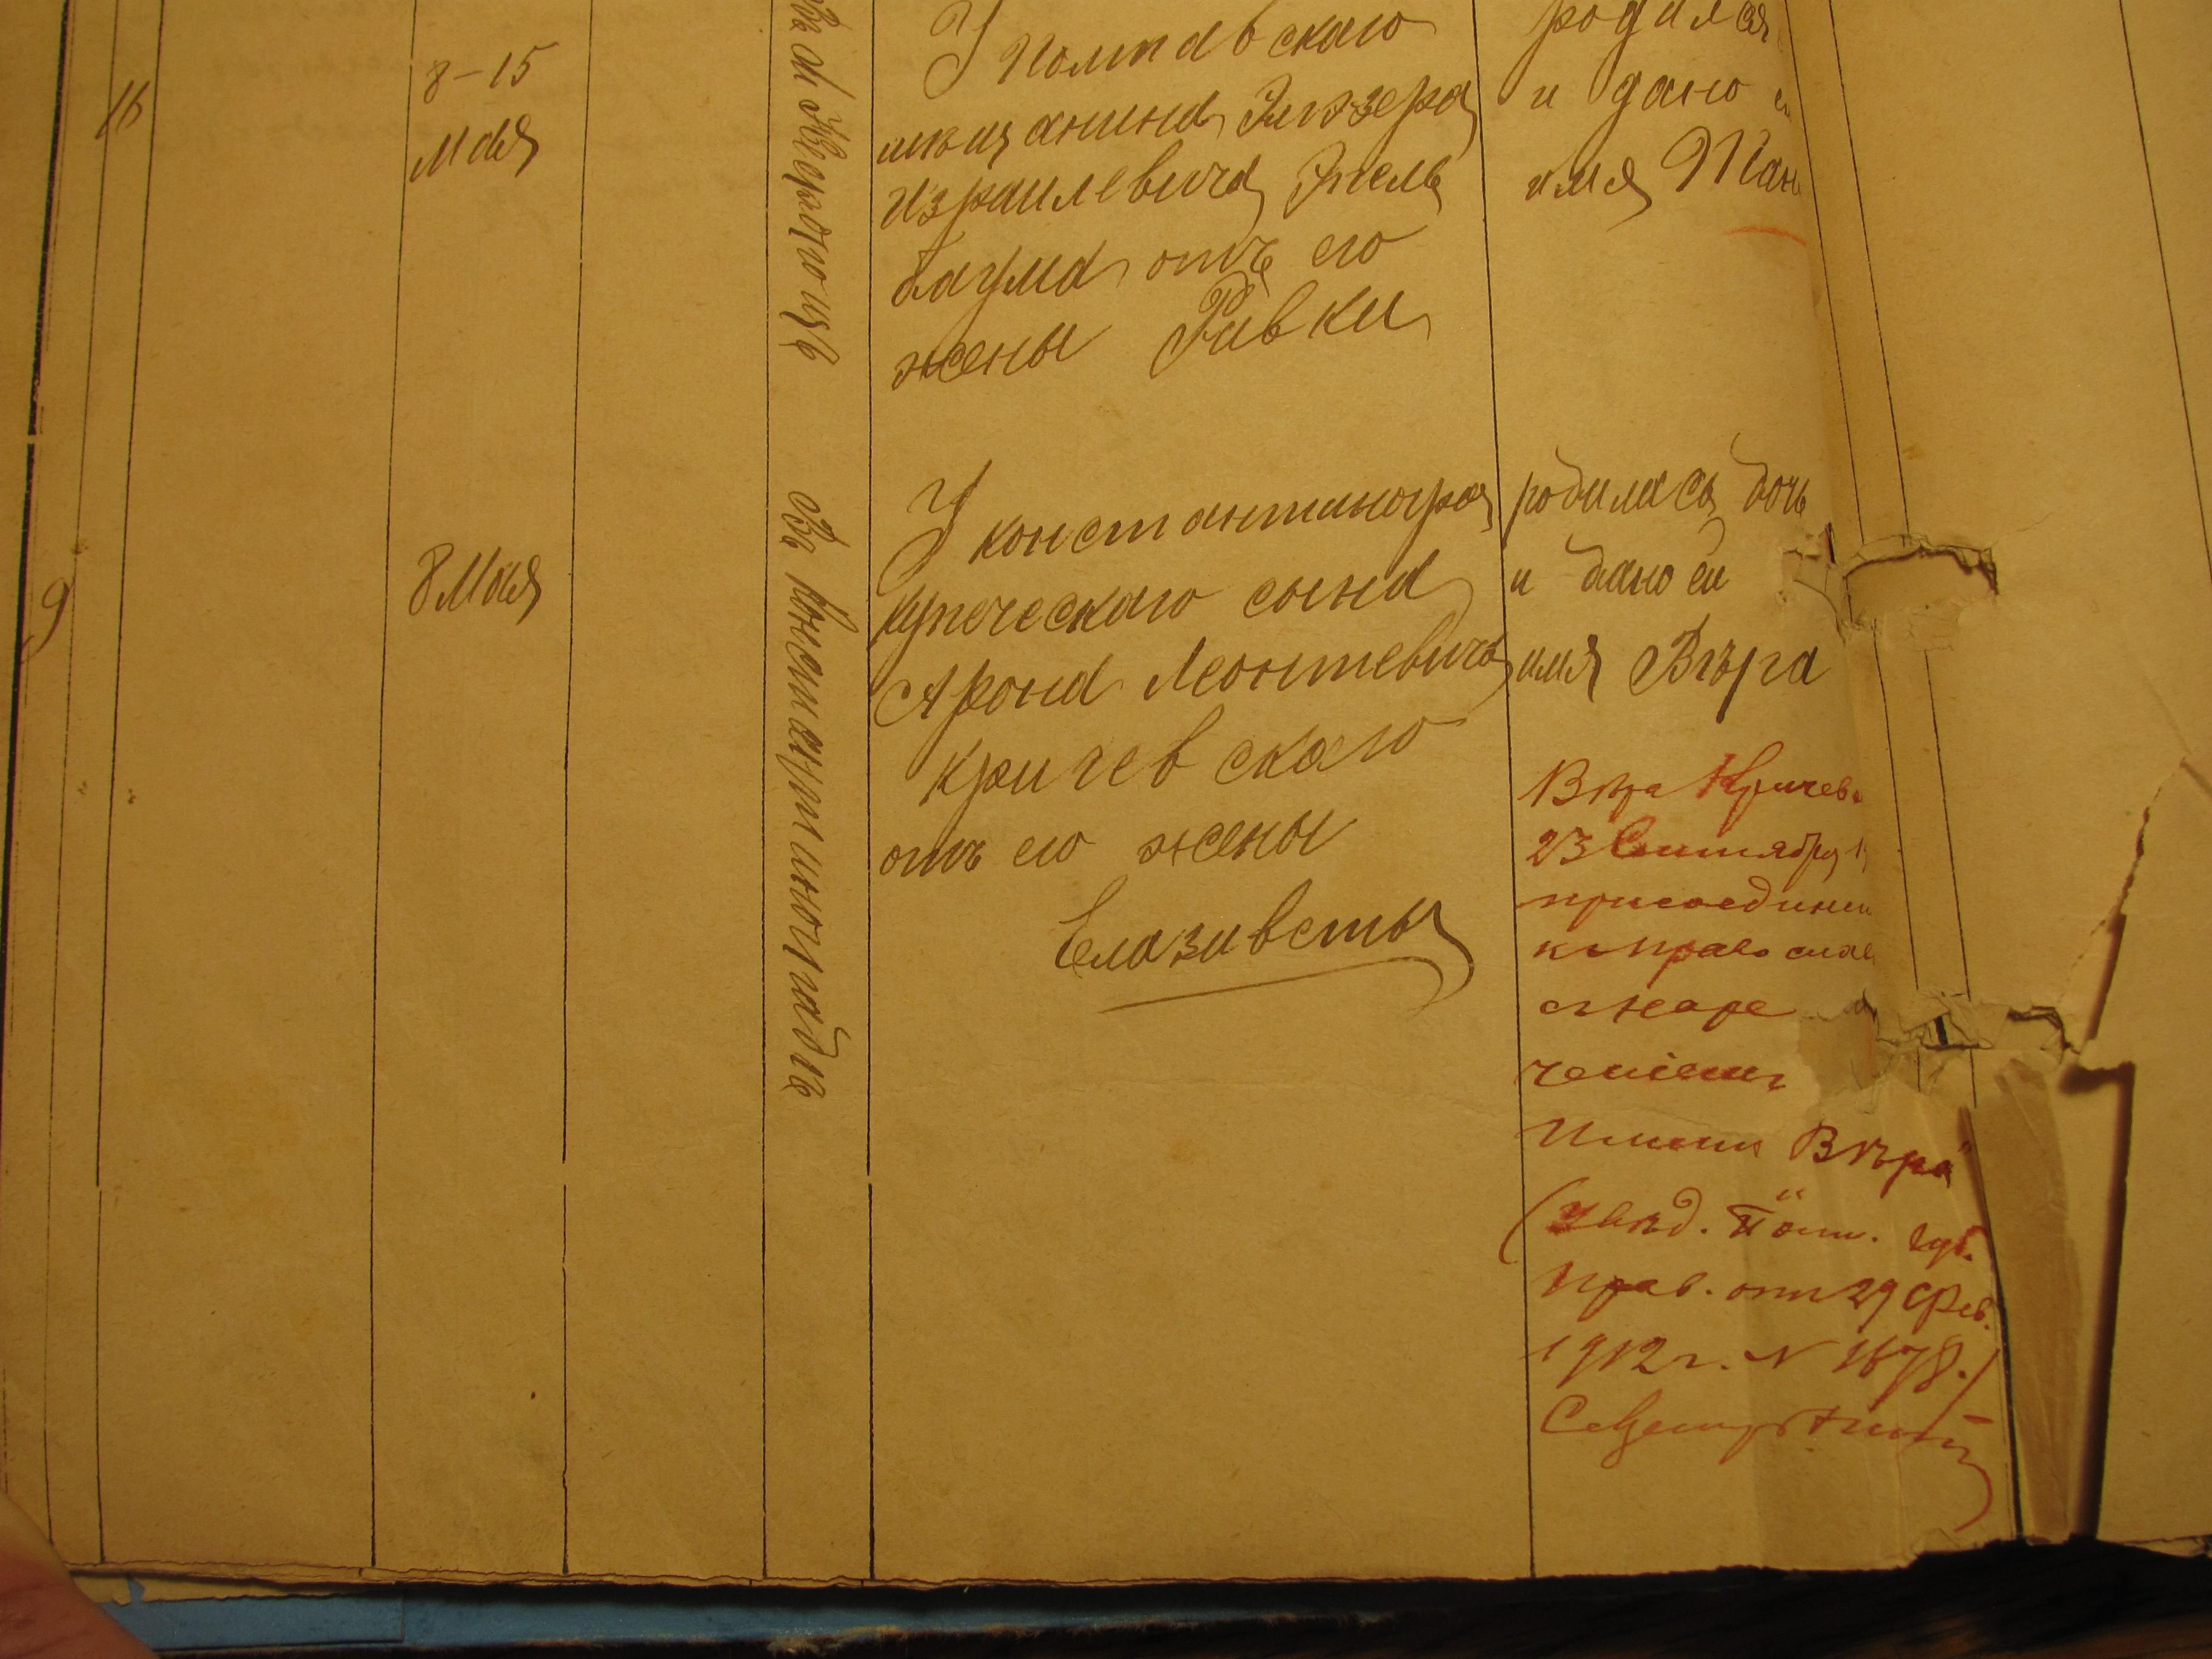 16
8-15
Мая
У Полтавскаго
мѣщанина Элѣзера
Израилевича Этель
баума отъ его
жены Ривки
родился
и дано
имя Тан
9
8 Мая
Въ Константиноградѣ
У константиногра
купеческаго сына
Арона Леонтевича
Кричевскаго
отъ его жены
Елизаветы
родилась дочь
и дано ей
имя Вѣра
Вѣра Кричев
23 Сентября 1
присоединен
къ православ
съ наре
ченіемъ
имени "Вѣра"
(увѣд. Полт. губ.
Прав. отъ 29 Фев.
1912 г. N 1678.)